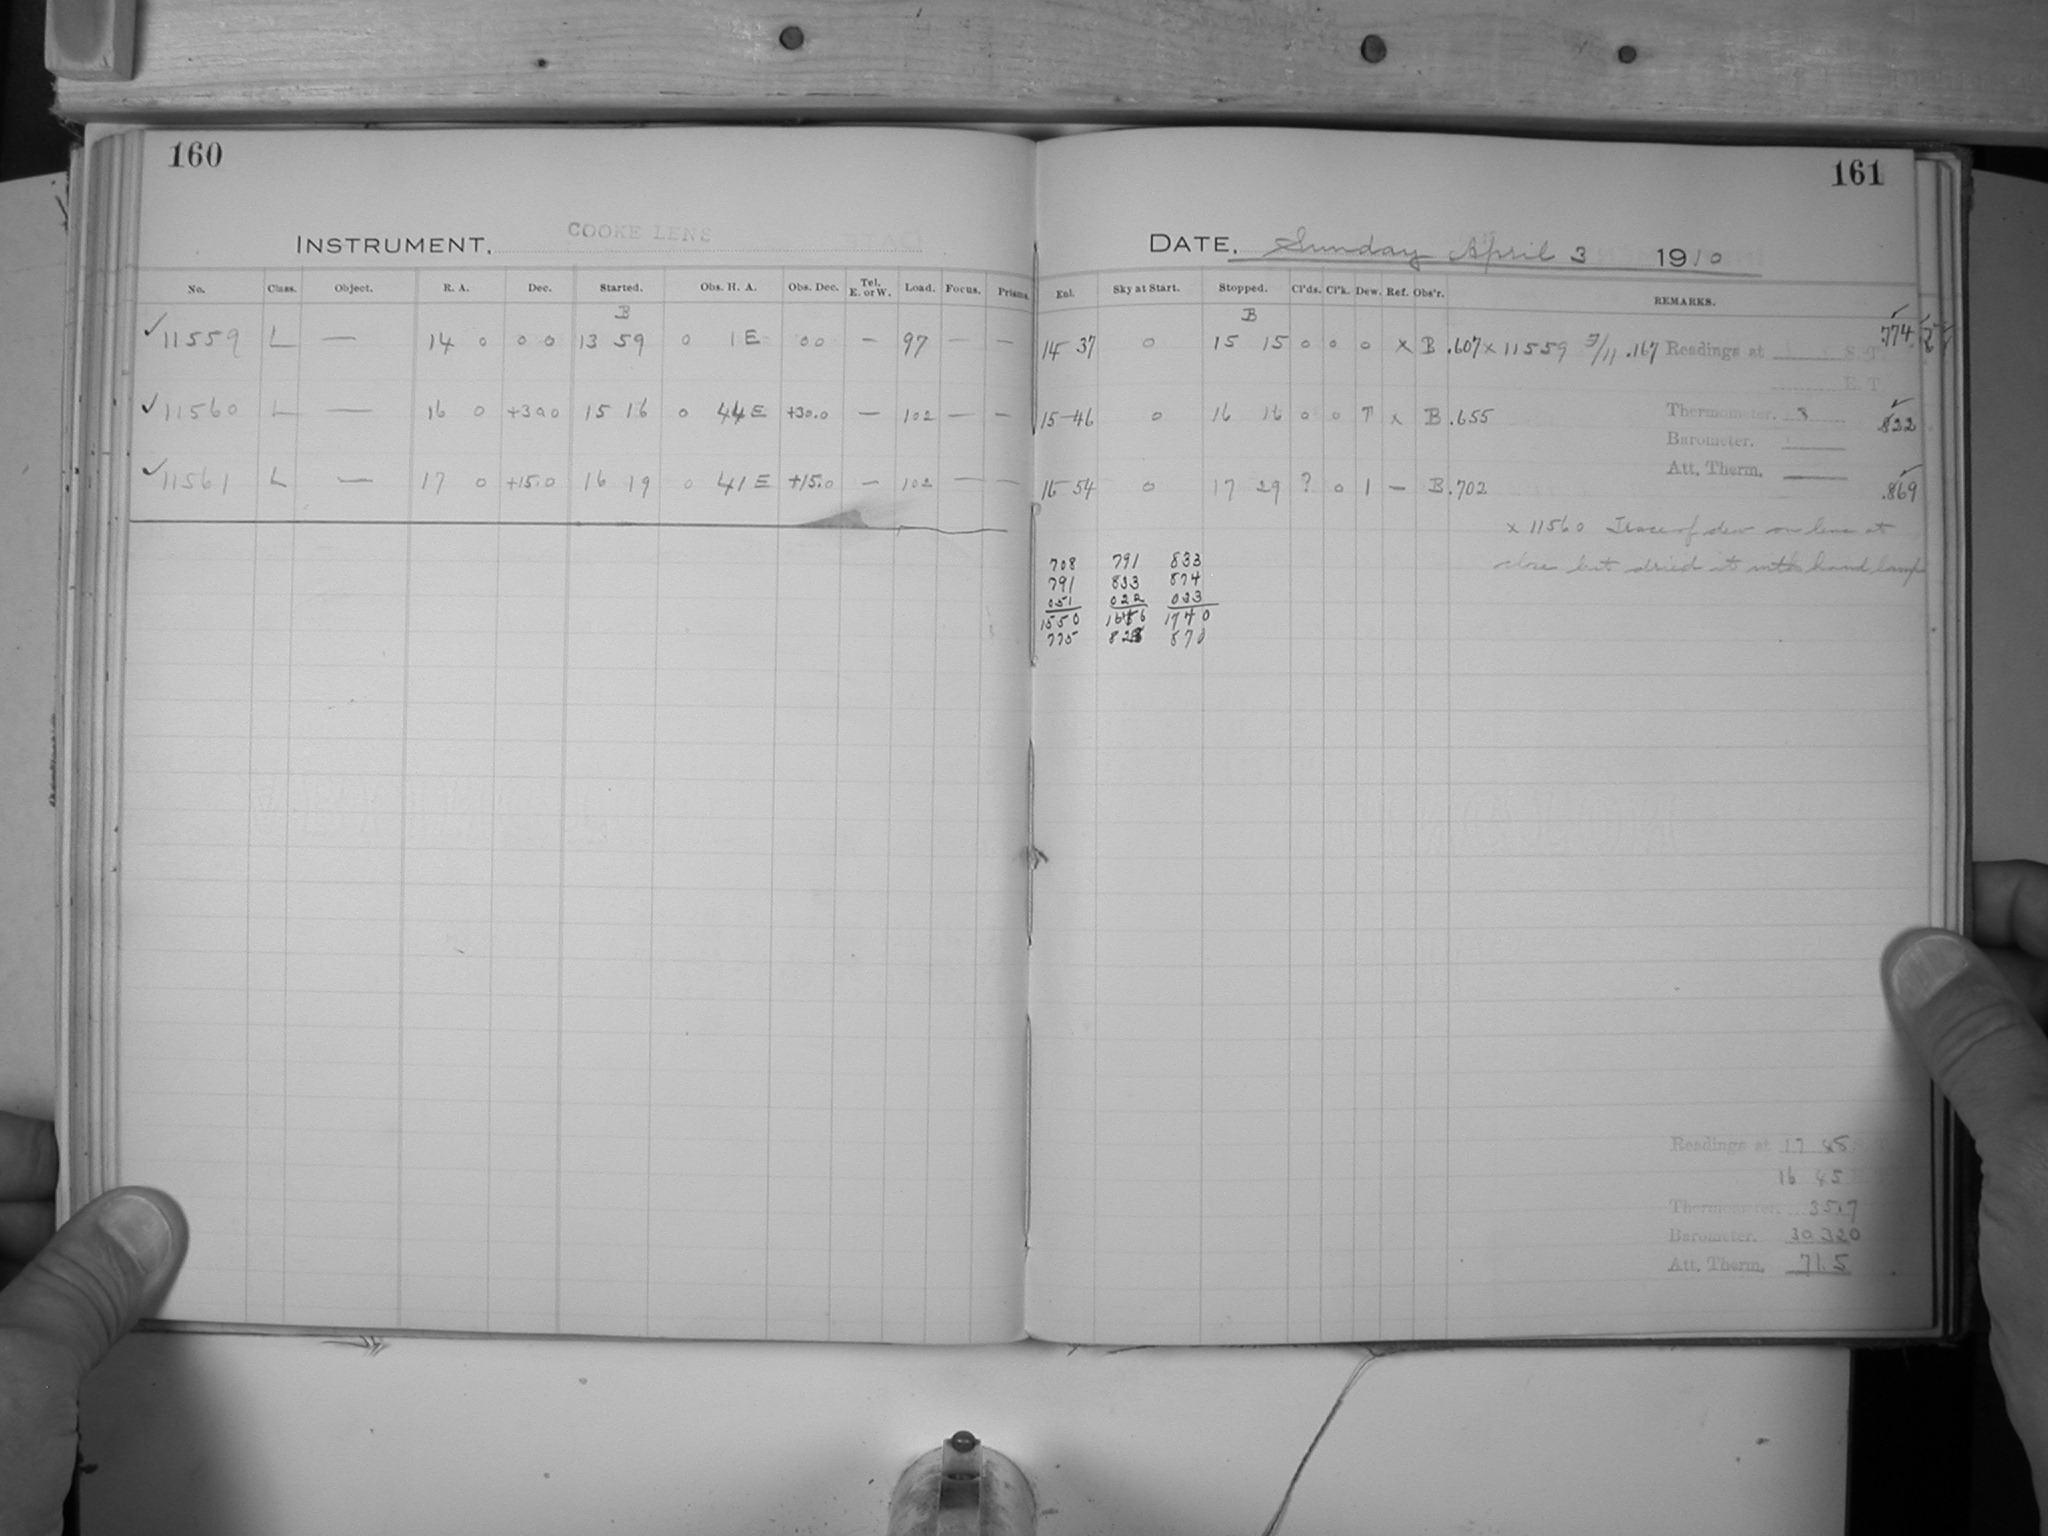 160
INSTRUMENT. COOKE LENS
No. Class. Object. R. A. Dec. Started. Obs. H. A. Obs. Dec. Tel. E. or W. Load. Focus. Prisms.
B
✓ 11559 L — 14 0 0 0 13 59 0 1 E 0 0 — 97 — —
✓ 11560 L — 16 0 +30.0 15 16 0 44 E +30.0 — 102 — —
✓ 11561 L — 17 0 +15.0 16 19 0 41 E +15.0 — 102 — —
161
DATE. Sunday April 3 1910
Enl. Sky at Start. Stopped. Cl'ds. Cl'k. Dew. Ref. Obs'r. REMARKS.
B
14 37 0 15 15 0 0 0 x B .607 x 11559 3/11 .167 Readings at S. T. .774
E. T.
15 46 0 16 16 0 0 x B .655 Thermometer. .822
Barometer.
Att. Therm.
16 54 0 17 29 ? 0 1 — B .702 .869
x 11560 Trace of dew on lens at
close but dried it with hand lamp
708 791 833
791 833 874
051 022 033
1550 1646 1740
775 823 870
Readings at 17 45
16 45
Thermometer. 35.7
Barometer. 30.320
Att. Therm. 71.5